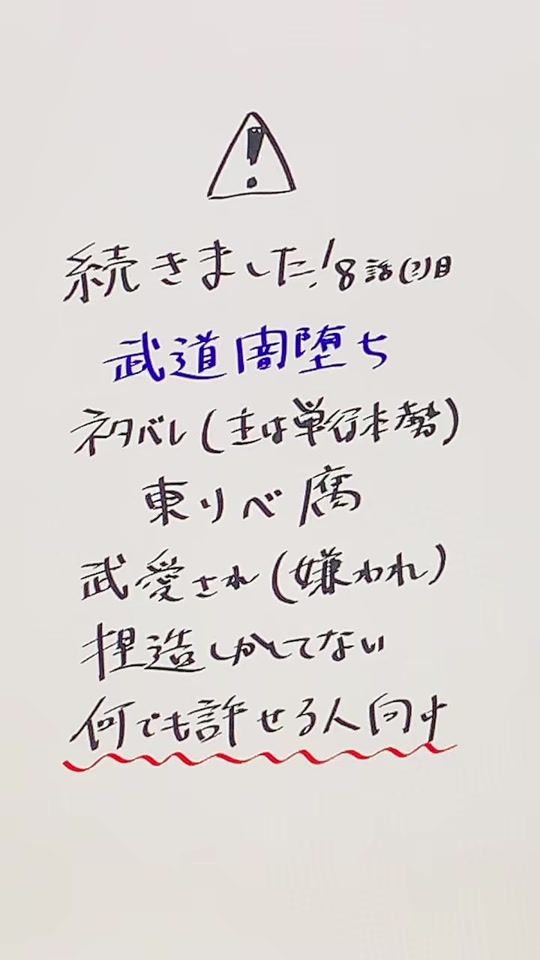 続きました!8話(?)目
武道闇堕ち
ネタバレ(主は単行本勢)
東リベ腐
武愛され(嫌われ)
捏造しかしてない
何でも許せる人向け